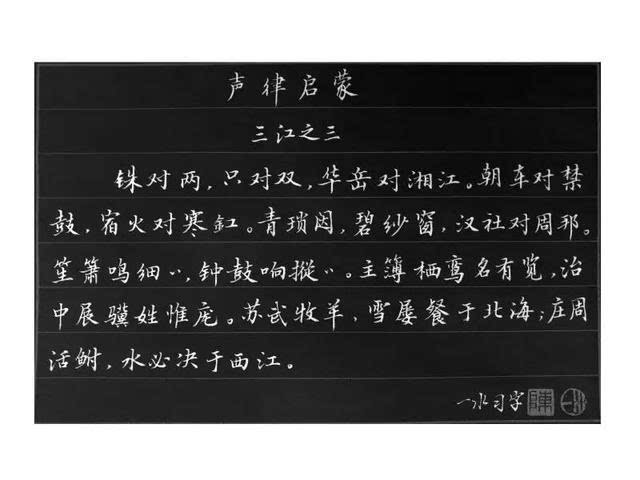 声律启蒙
三江之三
铢对两，只对双，华岳对湘江。朝车对禁
鼓，宿火对寒缸。青琐闼，碧纱窗，汉社对周邦。
笙箫鸣细〃，钟鼓响摐〃。主簿栖鸾名有览，治
中展骥姓惟庞。苏武牧羊，雪屡餐于北海；庄周
活鲋，水必决于西江。
一冰习字